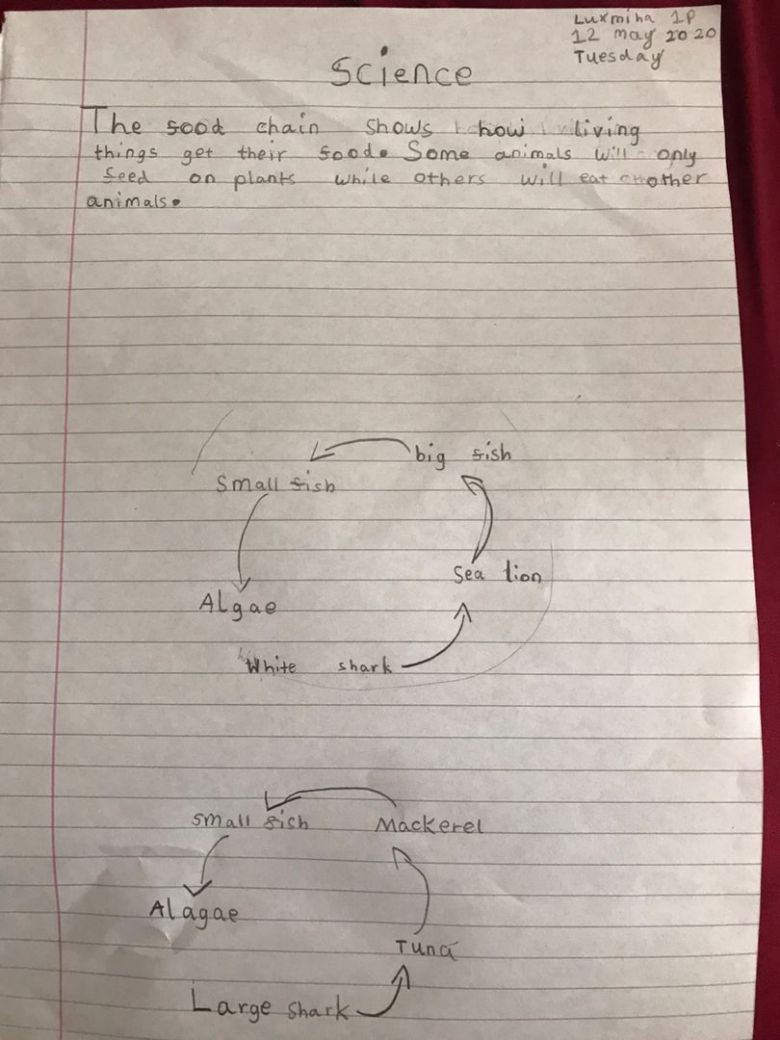 Luxmiha 1P
12 may 2020
Tuesday
Science
The food chain shows how living
things get their food. Some animals will only
feed on plants while others will eat other
animals.
big fish
Small fish
Sea lion
Algae
White shark
small fish Mackerel
Alagae
Tuna
Large shark